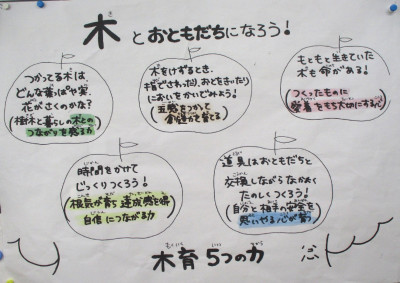 木とおともだちになろう!
つかってる木は、
どんな葉っぱや実、
花がさくのかな?
(樹木と暮らしの木との
つながりを感じる力)
木をけずるとき、
木育でさわったり、おとをきいたり
においをかいでみよう!
(五感をつかって
創造力を育てる)
もともと生きていた
木も命がある!
(つくったものに
愛着をもち大切にする心)
時間をかけて
じっくりつくろう!
(根気が育ち 達成感を得
自信につながる力)
道具はおともだちと
交換しながらなかよく
たのしくつくろう!
(自分と相手の安全を
思いやる心が育つ)
木育 5つの力